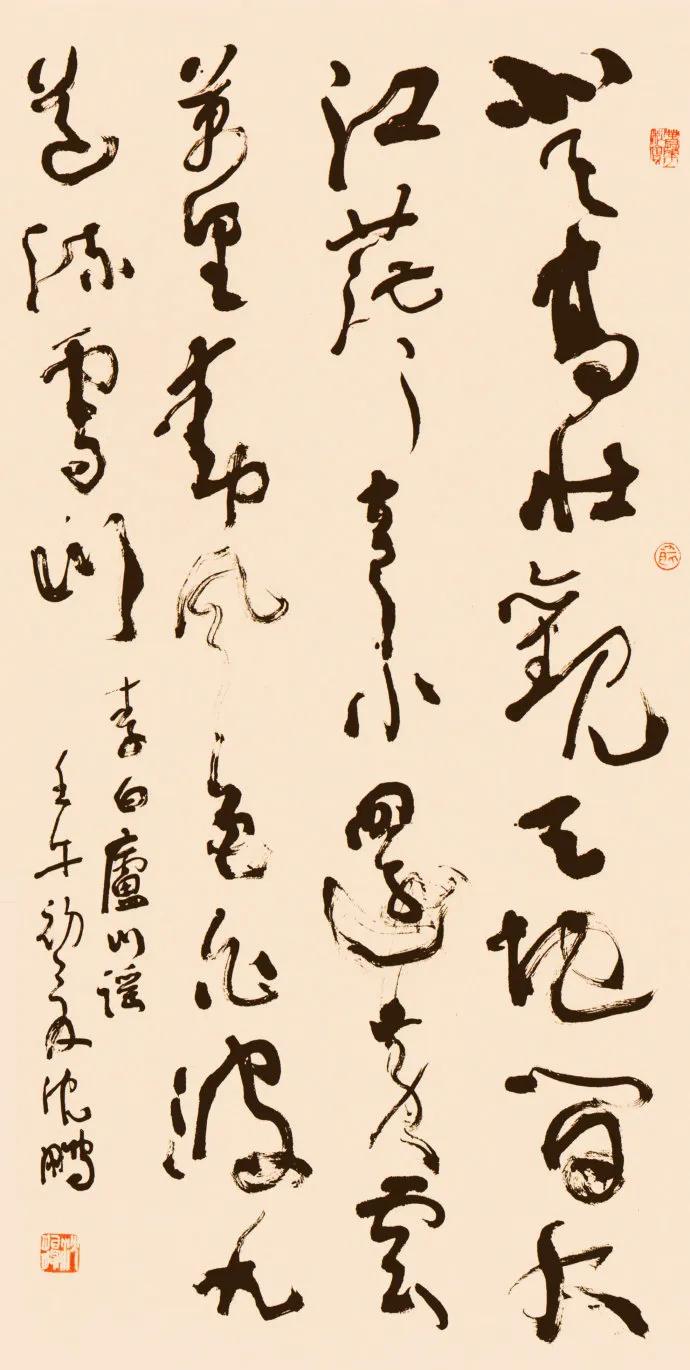 登高壯觀天地間大
江茫茫去不還黄雲
萬里動風色白波九
道流雪山
李白廬山謡
壬午初夏沈鵬